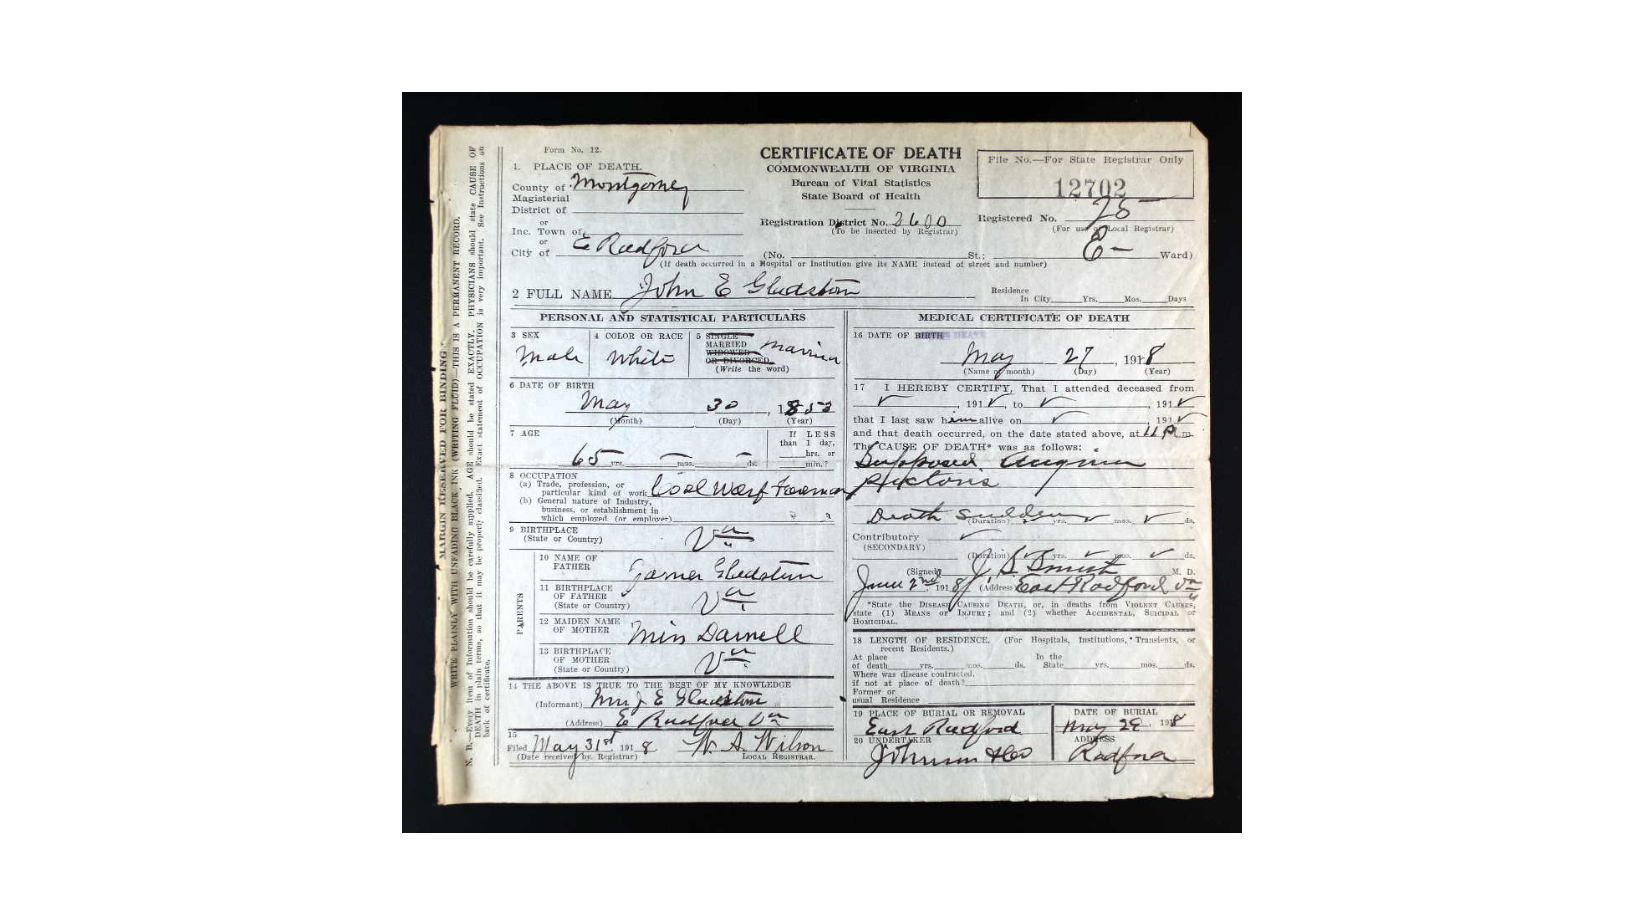 MARGIN RESERVED FOR BINDING
WRITE PLAINLY WITH UNFADING BLACK INK (WRITING FLUID)—THIS IS A PERMANENT RECORD.
N. B.—Every item of Information should be carefully supplied. AGE should be stated EXACTLY. PHYSICIANS should state CAUSE OF
DEATH in plain terms, so that it may be properly classified. Exact statement of OCCUPATION is very important. See Instructions on
back of certificate.
Form No. 12.
1. PLACE OF DEATH.
County of Montgomey
Magisterial
District of
or
Inc. Town of
or
City of E Radford
CERTIFICATE OF DEATH
COMMONWEALTH OF VIRGINIA
Bureau of Vital Statistics
State Board of Health
Registration District No. 2600
(To be inserted by Registrar)
File No.—For State Registrar Only
12702
Registered No. 25
(For use of Local Registrar)
(No. St.; E— Ward)
(If death occurred in a Hospital or Institution give its NAME instead of street and number)
2 FULL NAME John E Gladston
Residence
In City Yrs. Mos. Days
PERSONAL AND STATISTICAL PARTICULARS
3 SEX
Male
4 COLOR OR RACE
White
5 SINGLE
MARRIED
WIDOWED
OR DIVORCED
(Write the word)
Married
6 DATE OF BIRTH
May 30, 1853
(Month) (Day) (Year)
7 AGE
65 yrs. — mos. — ds.
If LESS
than 1 day,
hrs. or
min.?
8 OCCUPATION
(a) Trade, profession, or
particular kind of work Coal Warf Foreman
(b) General nature of Industry,
business, or establishment in
which employed (or employer)
9 BIRTHPLACE
(State or Country) Va
PARENTS
10 NAME OF
FATHER Gladston
11 BIRTHPLACE
OF FATHER
(State or Country) Va
12 MAIDEN NAME
OF MOTHER Miss Darnell
13 BIRTHPLACE
OF MOTHER
(State or Country) Va
14 THE ABOVE IS TRUE TO THE BEST OF MY KNOWLEDGE
(Informant) Mrs J E Gladston
(Address) E Radford Va
15
Filed May 31st 1918 W. A. Wilson
(Date received by Registrar) LOCAL REGISTRAR.
MEDICAL CERTIFICATE OF DEATH
16 DATE OF BIRTH DEATH
May 27, 1918
(Name of month) (Day) (Year)
17 I HEREBY CERTIFY, That I attended deceased from
✓, 191✓, to ✓, 191✓
that I last saw him alive on ✓, 191✓
and that death occurred, on the date stated above, at 11 P m.
The CAUSE OF DEATH* was as follows:
Supposed Angina
Death Sudden
(Duration) yrs. mos. ds.
Contributory
(SECONDARY)
(Duration) yrs. mos. ds.
(Signed) M. D.
June 2nd 1918 (Address) East Radford Va
*State the DISEASE CAUSING DEATH, or, in deaths from VIOLENT CAUSES,
state (1) MEANS OF INJURY; and (2) whether ACCIDENTAL, SUICIDAL or
HOMICIDAL.
18 LENGTH OF RESIDENCE. (For Hospitals, Institutions, Transients, or
recent Residents.)
At place
of death yrs. mos. ds.
In the
State yrs. mos. ds.
Where was disease contracted,
if not at place of death?
Former or
usual Residence
19 PLACE OF BURIAL OR REMOVAL
East Radford
DATE OF BURIAL
May 29, 1918
20 UNDERTAKER
Johnson & Co
ADDRESS
Radford